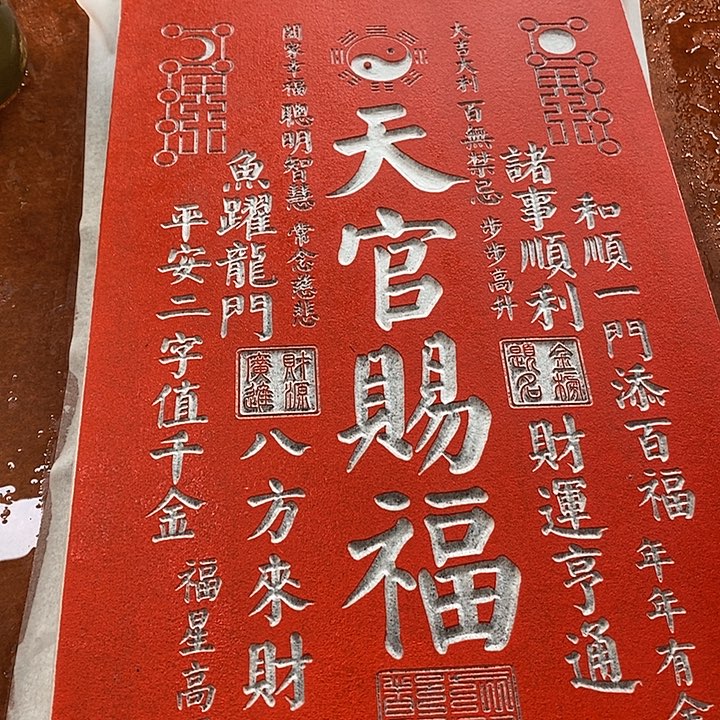 和順一門添百福 年年有
諸事順利 金榜題名 財運亨通
大吉大利 百無禁忌 步步高升
天官賜福
闔家幸福 聰明智慧 常念慈悲
魚躍龍門 財源廣進 八方來財
平安二字值千金 福星高